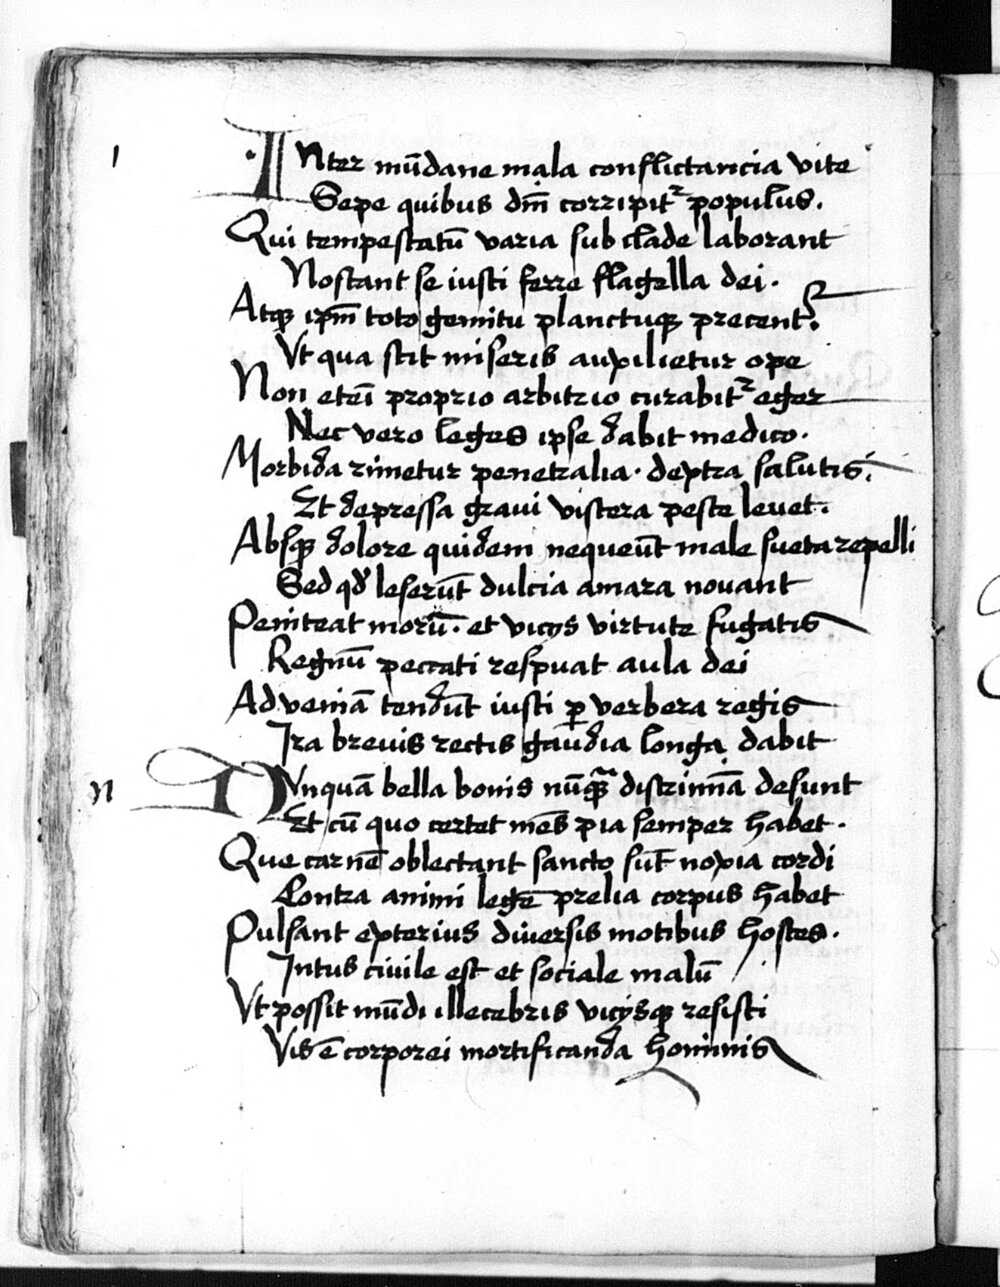 I Inter mūdane mala conflictancia vite
Sepe quibus dm̄ corripit᷑ populus.
Qui tempestatū varia sub clade laborant
Noscant se iusti ferre flagella dei.
Atqꝫ ip̄m toto gemitu planctuqꝫ precent᷑.
Vt qua scit miseris auxilietur ope
Non eteī proprio arbitrio curabit᷑ eger
Nec vero leges ipse dabit medico.
Morbida rimetur penetralia. dextra salutis.
Et depressa graui viscera peste leuet.
Absqꝫ dolore quidem nequeūt male sueta repelli
Sed qd̄ leserūt dulcia amara nouant
Peniteat morū. et vicijs virtute fugatis
Regnū peccati respuat aula dei
Ad veniā tendūt iusti ꝑ verbera regis
Ira breuis rectis gaudia longa dabit
II Nvnquā bella bonis nūqꝫ discrimīa desunt
Et cū quo certet mēs pia semper habet.
Que carnē oblectant sancto sūt noxia cordi
Contra animi legē prelia corpus habet
Pulsant exterius diuersis motibus hostes.
Intus ciuile est et sociale malū
Vt possit mūdi illecebris vicijsqꝫ resisti
Vis ē corporei mortificanda hominis